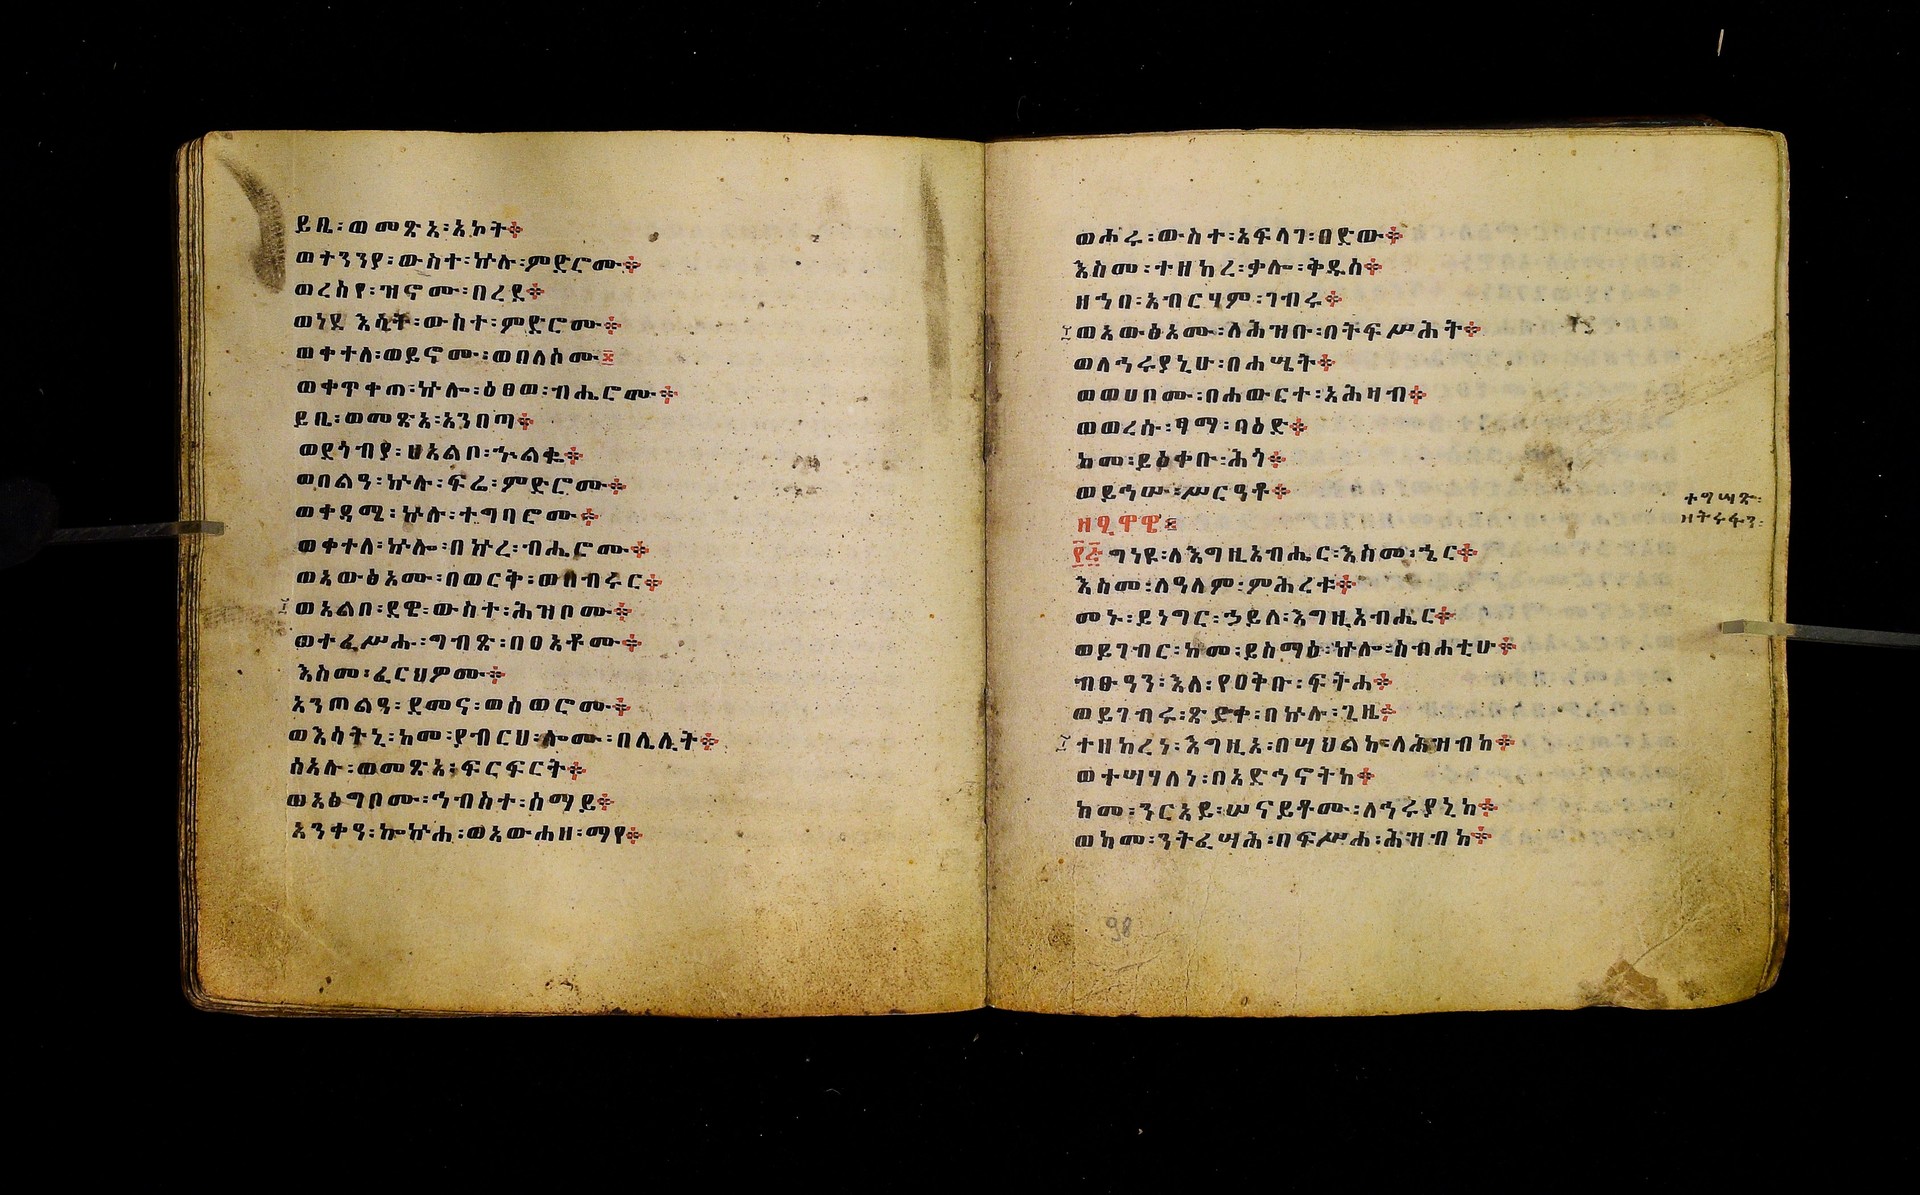 ይቤ፡ወመጽአ፡አኮት፨
ወተንንያ፡ውስተ፡ኵሉ፡ምድሮሙ፨
ወረሰየ፡ዝናሞሙ፡በረደ፨
ወነደ እሳት፡ውስተ፡ምድሮሙ፨
ወቀተለ፡ወይኖሙ፡ወበለሶሙ፨
ወቀጥቀጠ፡ኵሎ፡ዕፀወ፡ብሔሮሙ፨
ይቤ፡ወመጽአ፡አንበጣ፨
ወደጎብያ፡ዘአልቦ፡ኍልቈ፨
ወበልዓ፡ኵሉ፡ፍሬ፡ምድሮሙ፨
ወቀዳሜ፡ኵሉ፡ተግባሮሙ፨
ወቀተለ፡ኵሎ፡በኵረ፡ብሔሮሙ፨
ወአውፅአሙ፡በወርቅ፡ወበብሩር፨
ወአልቦ፡ደዌ፡ውስተ፡ሕዝቦሙ፨
ወተፈሥሐ፡ግብጽ፡በፀአቶሙ፨
እስመ፡ፈርህዎሙ፨
አንጦልዓ፡ደመና፡ወሰወሮሙ፨
ወእሳትኒ፡ከመ፡ያብርህ፡ሎሙ፡በሌሊት፨
ሰአሉ፡ወመጽአ፡ፍርፍርት፨
ወአፅግቦሙ፡ኅብስተ፡ሰማይ፨
አንቀዓ፡ኰኵሐ፡ወአውሐዘ፡ማየ፨
ወሖሩ፡ውስተ፡አፍላገ፡በድው፨
እስመ፡ተዘከረ፡ቃሎ፡ቅዱስ፨
ዘኀበ፡አብርሃም፡ገብሩ፨
ወአውፅአሙ፡ለሕዝቡ፡በትፍሥሕት፨
ወለኅሩያኒሁ፡በሐሤት፨
ወወሀቦሙ፡በሐውርተ፡አሕዛብ፨
ወወረሱ፡ፃማ፡ባዕድ፨
ከመ፡ይዕቀቡ፡ሕጎ፨
ወይኅሡ፡ሥርዓቶ፨
ዘሂዋዌ፤
፻፭ ግነዩ፡ለእግዚአብሔር፡እስመ፡ኄር፨
እስመ፡ለዓለም፡ምሕረቱ፨
መኑ፡ይነግር፡ኃይለ፡እግዚአብሔር፨
ወይገብር፡ከመ፡ይስማዕ፡ኵሎ፡ስብሐቲሁ፨
ብፁዓን፡እለ፡የዐቅቡ፡ፍትሐ፨
ወይገብሩ፡ጽድቀ፡በኵሉ፡ጊዜ፨
ተዘከረነ፡እግዚአ፡በሣህልከ፡ለሕዝብከ፨
ወተሣሃለነ፡በአድኅኖትከ፨
ከመ፡ንርአይ፡ሠናይቶሙ፡ለኅሩያኒከ፨
ወከመ፡ንትፈሣሕ፡በፍሥሐ፡ሕዝብከ፨
98